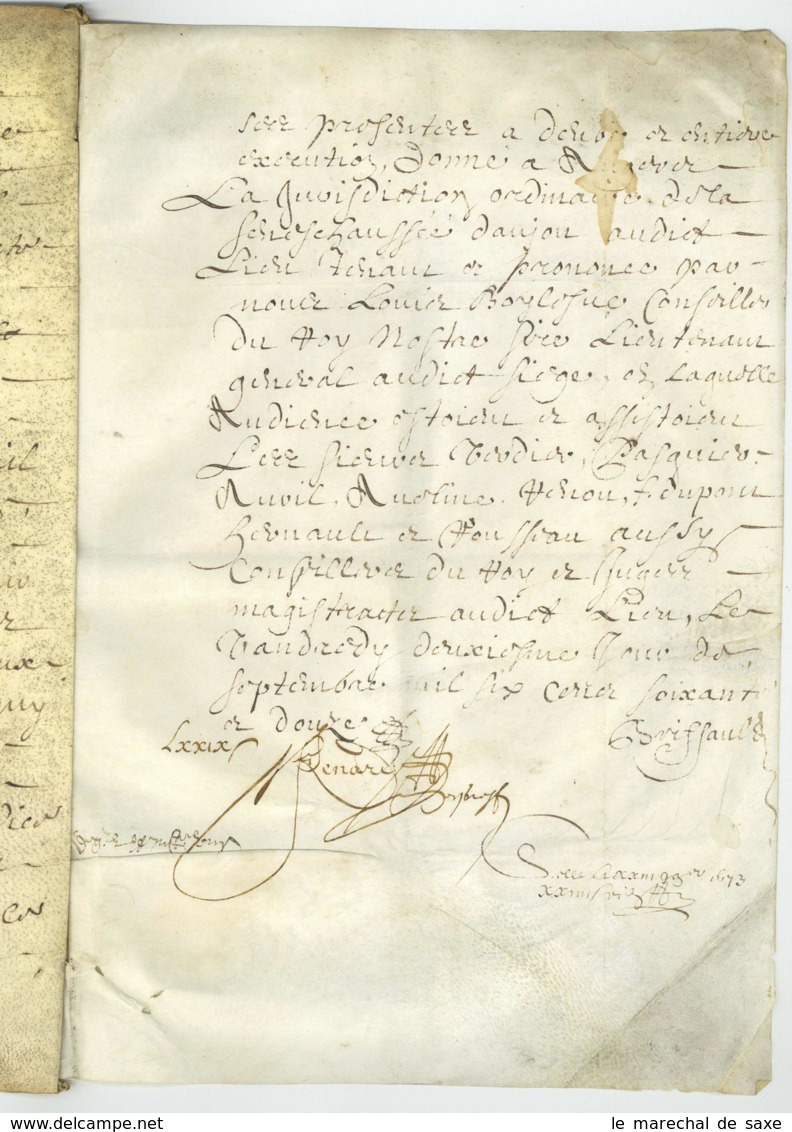 ces presentes a deube et entiere
execution, Donné a Angers
La Jurisdiction ordinaire de la
seneschaussée danjou audict
Lieu tenant et prononcé par
nous Louis Boylesve Conseiller
Du Roy Nostre sire Lieutenant
general audict siege, en laquelle
Audience estoient et assistoient
Les sieurs Verdier, Pasquier
Avril, Menou, Dupont
hernault et Rousseau aussy
Conseillers du Roy et Juges
magistracts audict Lieu, Le
Vandredy deuxiesme Jour de
septembre mil six cens soixante
et douze
LXXIX
Boissault
Renard
1673
le marechal de saxe